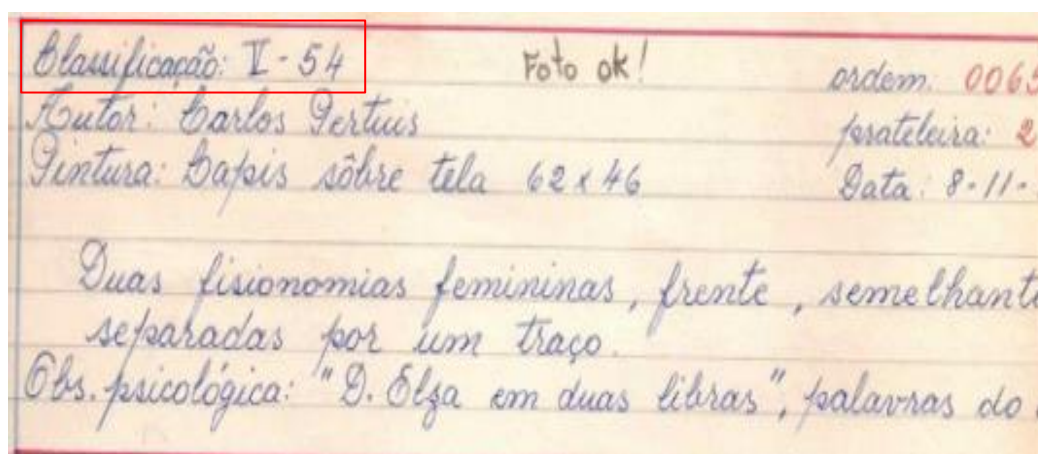 Classificação: V-54 Foto ok! ordem. 0065
Autor: Carlos Pertuis prateleira: 2
Pintura: Lapis sôbre tela 62x46 Data: 8-11-
Duas fisionomias femininas, frente, semelhante
separadas por um traço.
Obs. psicológica: "D. Elza em duas libras", palavras do